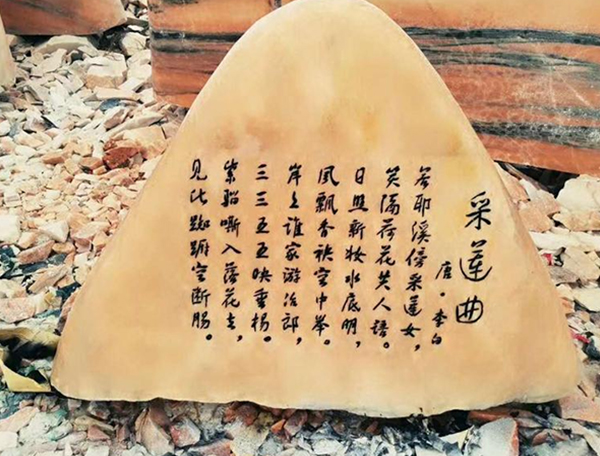 采莲曲
唐·李白
若耶溪傍采莲女，
笑隔荷花共人语。
日照新妆水底明，
风飘香袂空中举。
岸上谁家游冶郎，
三三五五映垂杨。
紫骝嘶入落花去，
见此踟蹰空断肠。